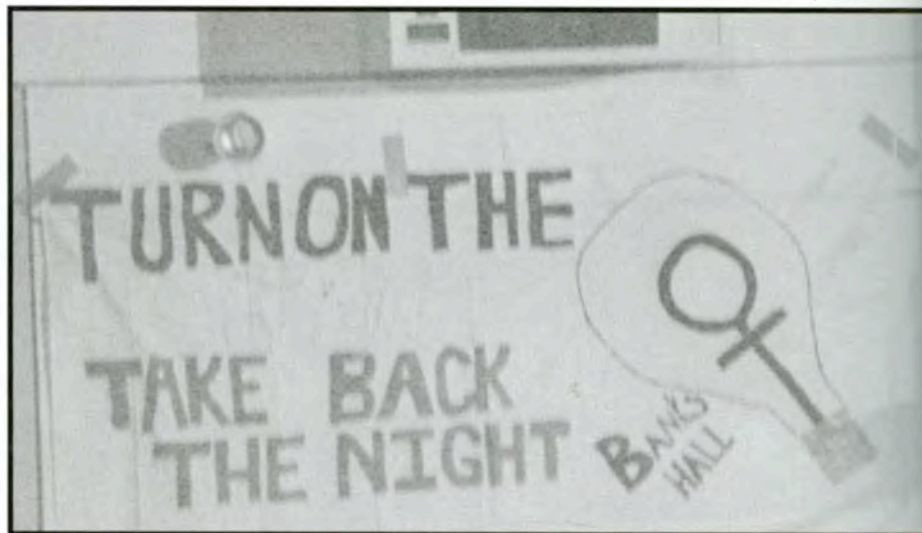 TURN ON THE
TAKE BACK
THE NIGHT
BANKS
HALL